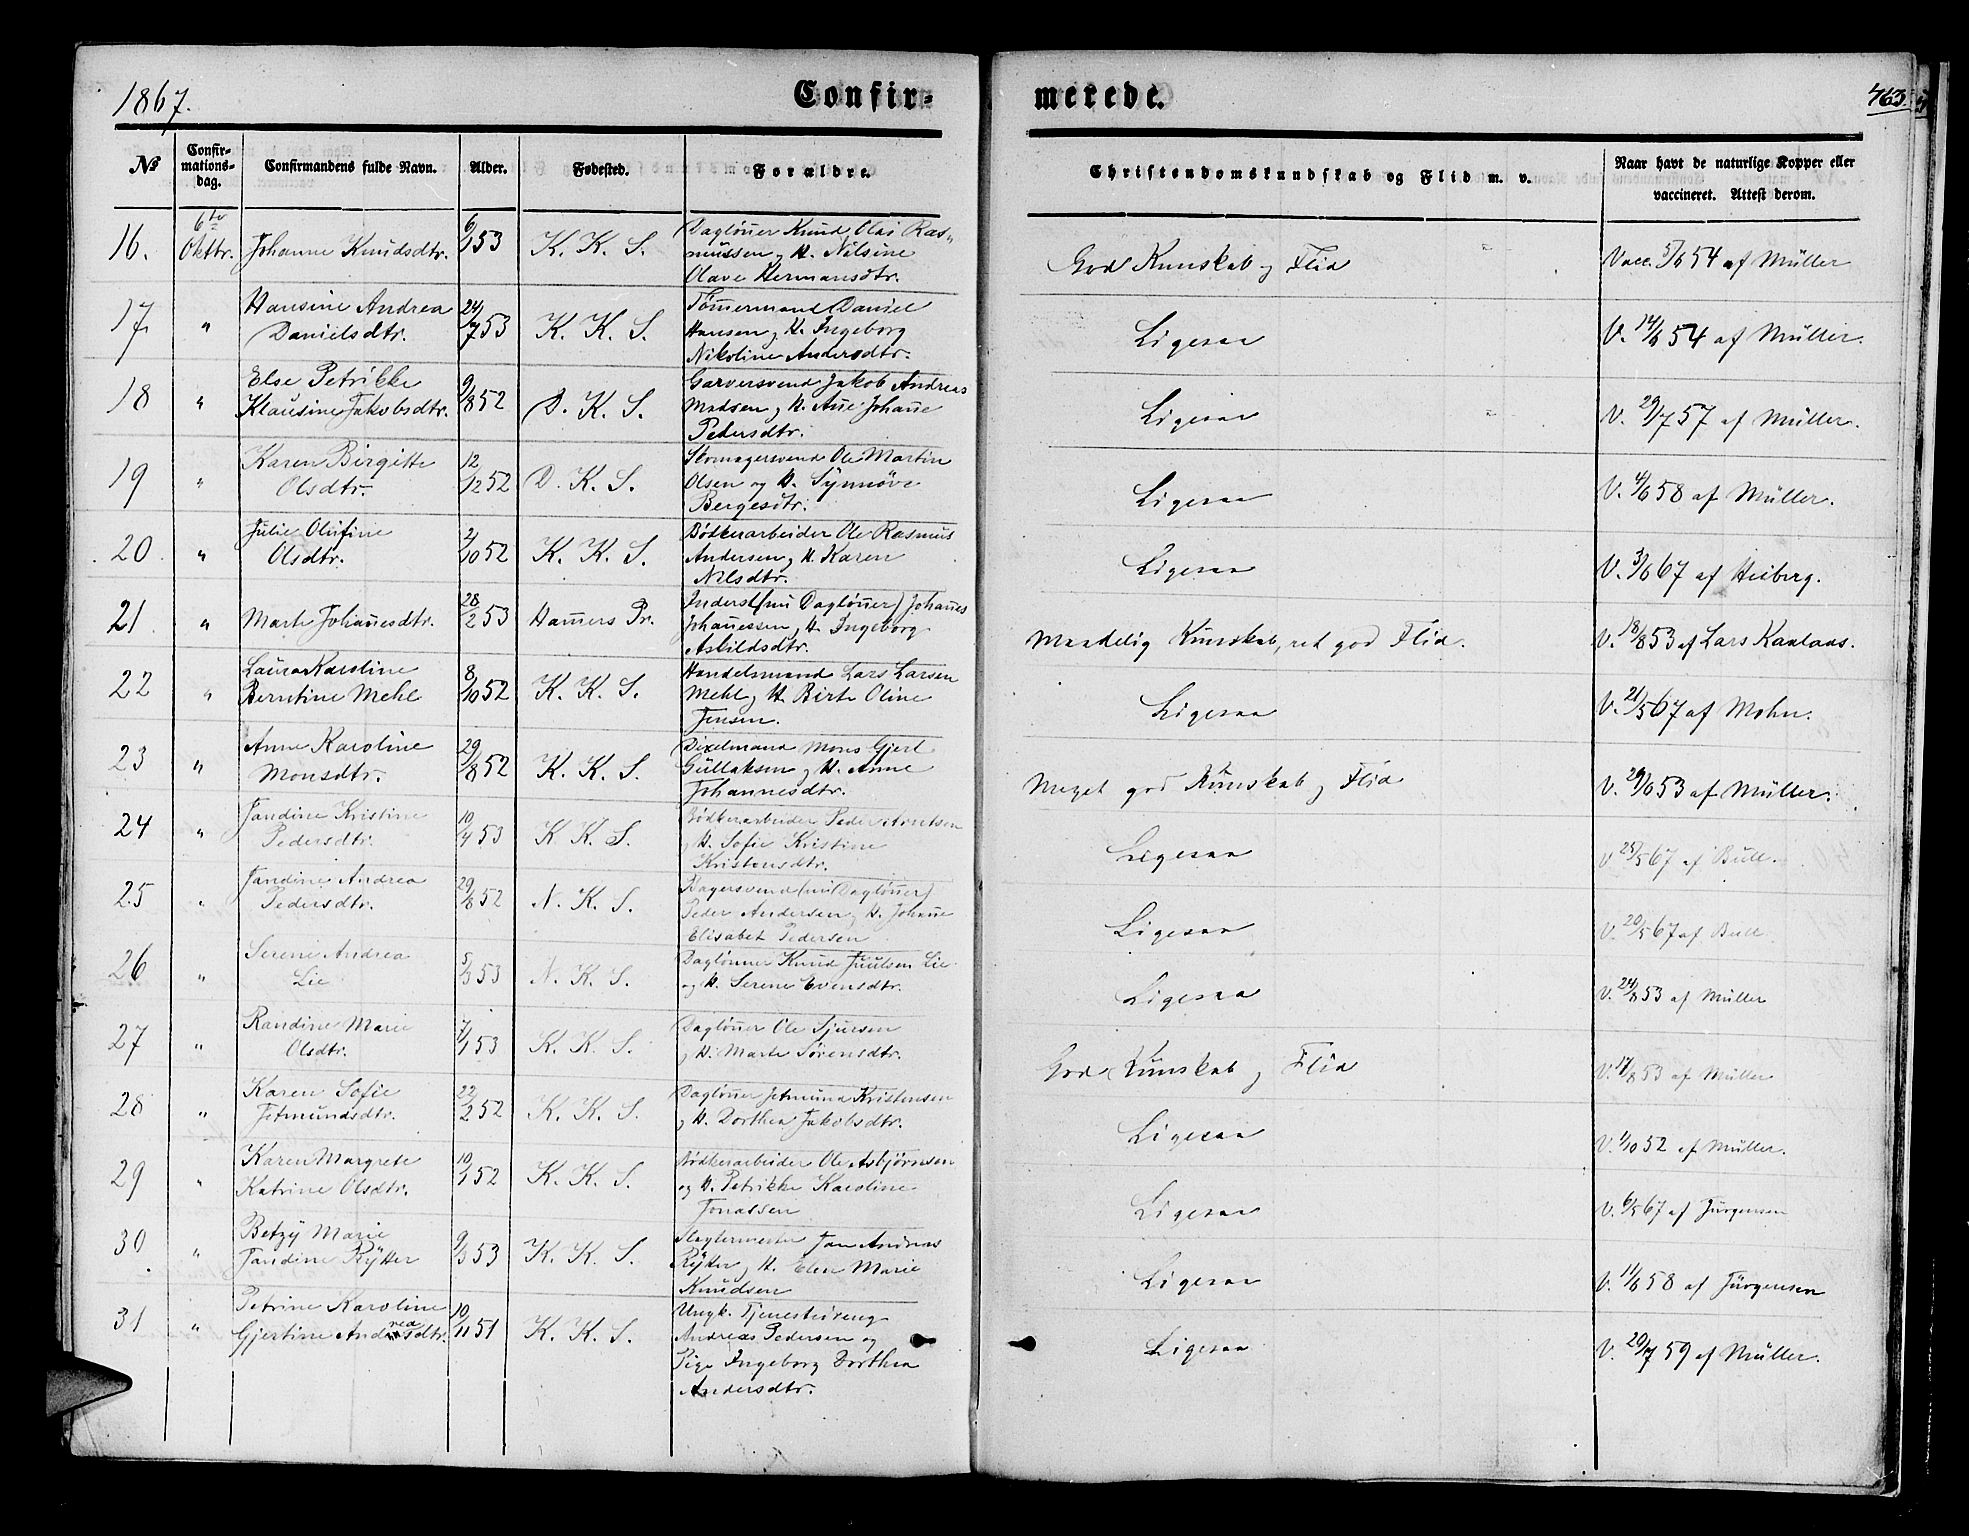 1867.
Confir-
merede.
463.
No
Confir-
mations-
dag.
Confirmandens fulde Navn.
Alder.
Fødested.
Forældre.
Christendomskundskab og Flid m. v.
Naar havt de naturlige Kopper eller
vaccineret. Attest derom.
16.
6te
Oktbr.
Johanne Knudsdtr.
6/1 53
K. K. S.
Dagløner Knud Olai Ras-
mussen og H. Nilsine
Olave Hermansdtr.
God Kunskab og Flid
Vacc. 5/6 54 af Müller
17.
"
Hansine Andrea
Danielsdtr.
24/7 53
K. K. S.
Tømermand Daniel
Hansen og H. Ingeborg
Nikoline Andersdtr.
Ligesaa
V. 14/6 54 af Müller.
18
"
Else Petrikke
Klausine Jakobsdtr.
9/8 52
D. K. S.
Garversvend Jakob Andreas
Madsen og H. Ane Johane
Pedersdtr.
Ligesaa
V. 29/7 57 af Müller.
19
"
Karen Birgitte
Olsdtr.
12/12 52
D. K. S.
Skomagersvend Ole Martin
Olsen og H. Synnöve
Bergesdtr.
Ligesaa
V. 4/6 58 af Müller.
20
"
Julie Olufine
Olsdtr.
2/10 52
K. K. S.
Bödkerarbeider Ole Rasmus
Andersen og H. Karen
Nilsdtr.
Ligesaa
V. 3/6 67 af Heiberg.
21
"
Marte Johanesdtr.
28/2 53
Hamers Pr.
Inderst (nu Dagløner) Johanes
Johanessen og H. Ingeborg
Askildsdtr.
Maadelig Kunskab, ret god Flid.
V. 18/8 53 af Lars Kaalaas.
22
"
Laura Karoline
Berntine Mehl
8/10 52
K. K. S.
Handelsmand Lars Larsen
Mehl og H. Birte Oline
Jensen.
Ligesaa
V. 21/5 67 af Mohn.
23
"
Anne Karoline
Monsdtr.
29/8 52
K. K. S.
Dixelmand Mons Gjert
Gullaksen og H. Anne
Johannesdtr.
Meget god Kunskab og Flid
V. 29/6 53 af Müller.
24
"
Jandine Kristine
Pedersdtr.
10/4 53
K. K. S.
Bödkerarbeider Peder Arntsen
og H. Sofie Kristine
Kristensdtr.
Ligesaa
V. 25/5 67 af Bull.
25
"
Jandine Andrea
Pedersdtr.
29/8 52
N. K. S.
Bagersvend (nu Dagløner)
Peder Andersen og H. Johane
Elisabet Pedersen
Ligesaa
V. 20/5 67 af Bull
26
"
Serene Andrea
Lie
5/3 53
N. K. S.
Daglønner Knud Juulsen Lie
og H. Serene Evensdtr.
Ligesaa
V. 24/8 53 af Müller
27
"
Randine Marie
Olsdtr.
7/1 53
K. K. S.
Dagløner Ole Sjursen
og H. Marte Sørensdtr.
God Kunskab og Flid
V. 17/8 53 af Müller
28
"
Karen Sofie
Jetmundsdtr.
22/2 52
K. K. S.
Dagløner Jetmund Kristensen
og H. Dorthea Jakobsdtr.
Ligesaa
V. 1/10 52 af Müller.
29
"
Karen Margrete
Katrine Olsdtr.
10/1 52
K. K. S.
Bödkerarbeider Ole Asbjørnsen
og H. Petrikke Karoline
Jonassen
Ligesaa
V. 6/5 67 af Jürgensen
30
"
Betzy Marie
Jandine Rÿtter
9/3 53
K. K. S.
Slagtermester Jan Andreas
Rÿtter og H. Elen Marie
Knudsen
Ligesaa
V. 11/6 58 af Jürgensen
31
"
Petrine Karoline
Gjertine Andreasdtr.
10/11 51
K. K. S.
Ungk. Tjenestedreng
Andreas Pedersen og
Pige Ingeborg Dorthea
Andersdtr.
Ligesaa
V. 20/7 59 af Müller.